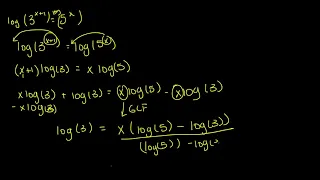 log(3^(x+1)) = (5^x)
log(3^(x+1)) = log(5^x)
(x+1) log(3) = x log(5)
x log(3) + log(3) = x log(5) - x log(3)
- x log(3)
GCF
log(3) = x (log(5) - log(3))
(log(5)) - log(